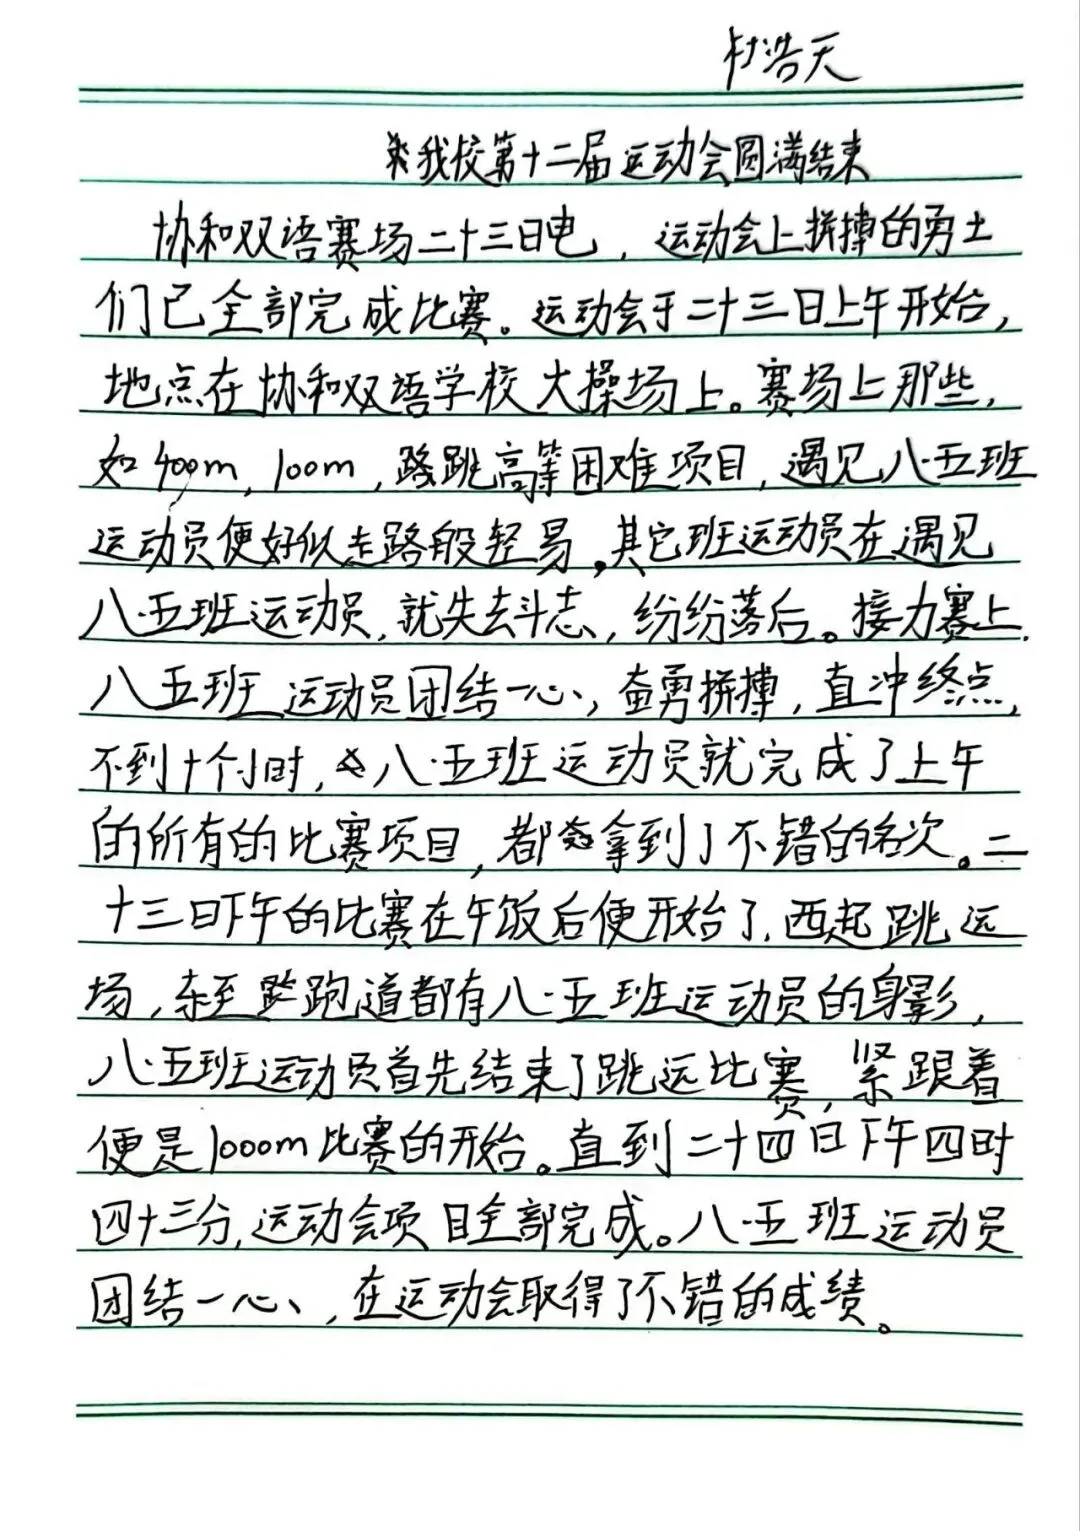 浩天
我校第十二届运动会圆满结束
协和双语赛场二十三日电，运动会上拼搏的勇士
们已全部完成比赛。运动会于二十三日上午开始，
地点在协和双语学校大操场上。赛场上那些，
如400m，100m，跳高等困难项目，遇见八·五班
运动员便好似走路般轻易。其它班运动员在遇见
八·五班运动员，就失去斗志，纷纷落后。接力赛上，
八·五班运动员团结一心、奋勇拼搏，直冲终点，
不到十个小时，八·五班运动员就完成了上午
的所有的比赛项目，都拿到了不错的名次。二
十三日下午的比赛在午饭后便开始了，西起跳远
场，东至跑道都有八·五班运动员的身影，
八·五班运动员首先结束了跳远比赛，紧跟着
便是1000m比赛的开始。直到二十四日下午四时
四十三分，运动会项目全部完成。八·五班运动员
团结一心、，在运动会取得了不错的成绩。